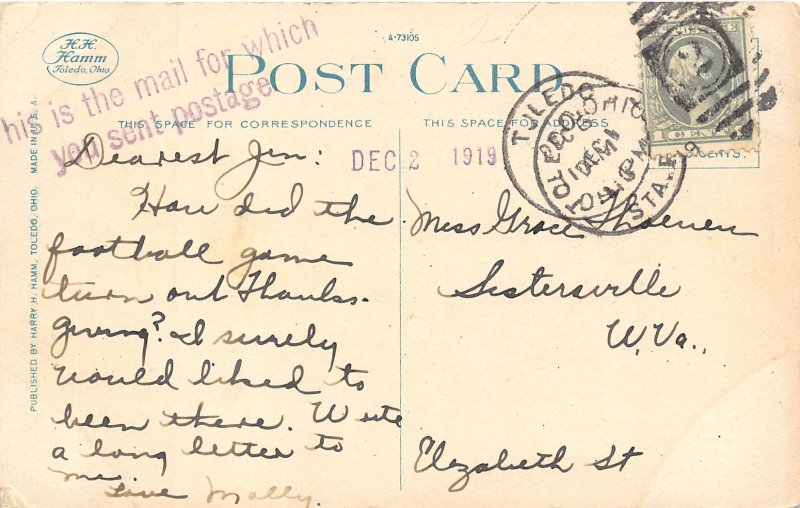 H.H.
Hamm
Toledo, Ohio.
A-73105
his is the mail for which
you sent postage
POST CARD
THIS SPACE FOR CORRESPONDENCE
THIS SPACE FOR ADDRESS
MADE IN U.S.A.
PUBLISHED BY HARRY H. HAMM, TOLEDO, OHIO.
TOLEDO OHIO
DEC 1
PM
STA.
DEC 2 1919
Dearest Jen:
How did the
football game
turn out Thanks-
giving? I surely
would liked to
been there. Write
a long letter to
me.
Love Molly.
Miss Grace
Sistersville
W. Va.,
Elizabeth St